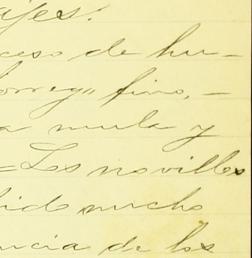 ajes.
ceso de hu-
borrego fino, -
a mula y
= Los novillos
dido mucho
ncia de los